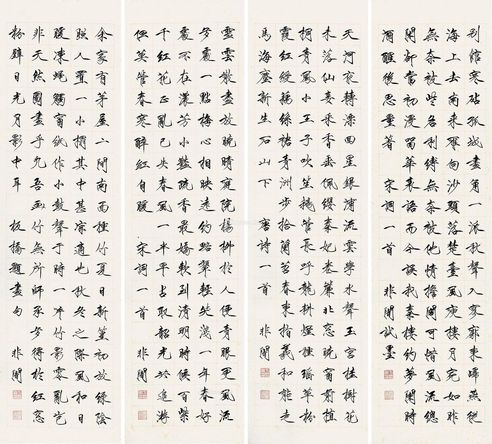 別館寒砧孤城畫角一派秋聲入寥廓東歸燕從
海上去南來雁向沙頭落楚臺風庾樓月宛如昨
無奈被些名利縛無奈被他情擔閣可惜風流總
閒卻當初漫留華表語而今誤我秦樓約夢闌時
酒醒後思量著 宋詞一首 非闇試墨
天河夜轉漂回星銀浦流雲學水聲玉宮桂樹花
未落仙妾采香垂佩纓秦妃卷簾北窗曉窗前植
桐青鳳小王子吹笙鵝管長呼龍耕煙種瑤草粉
霞紅綬藕絲裙青洲步拾蘭苕春東指羲和能走
馬海塵新生石山下 唐詩一首 非闇
雪雲散盡放曉晴庭院楊柳於人便青眼更風流
多處一點梅心相映遠約略顰輕笑淺一年春好
處不在濃芳小艷疏香最嬌軟到清明時候百紫
千紅花正亂已失春風一半早占取韶光共追遊
但莫管春寒醉紅自暖 宋詞一首 非闇
余家有茅屋二間南面種竹夏日新篁初放綠陰
照人置一小榻其中甚涼適也秋冬之際風和日
暖凍蠅觸窗紙作小鼓聲於時一片竹影零亂豈
非天然圖畫乎凡吾畫竹無所師承多得於紙窗
粉壁日光月影中耳 板橋題畫句 非闇